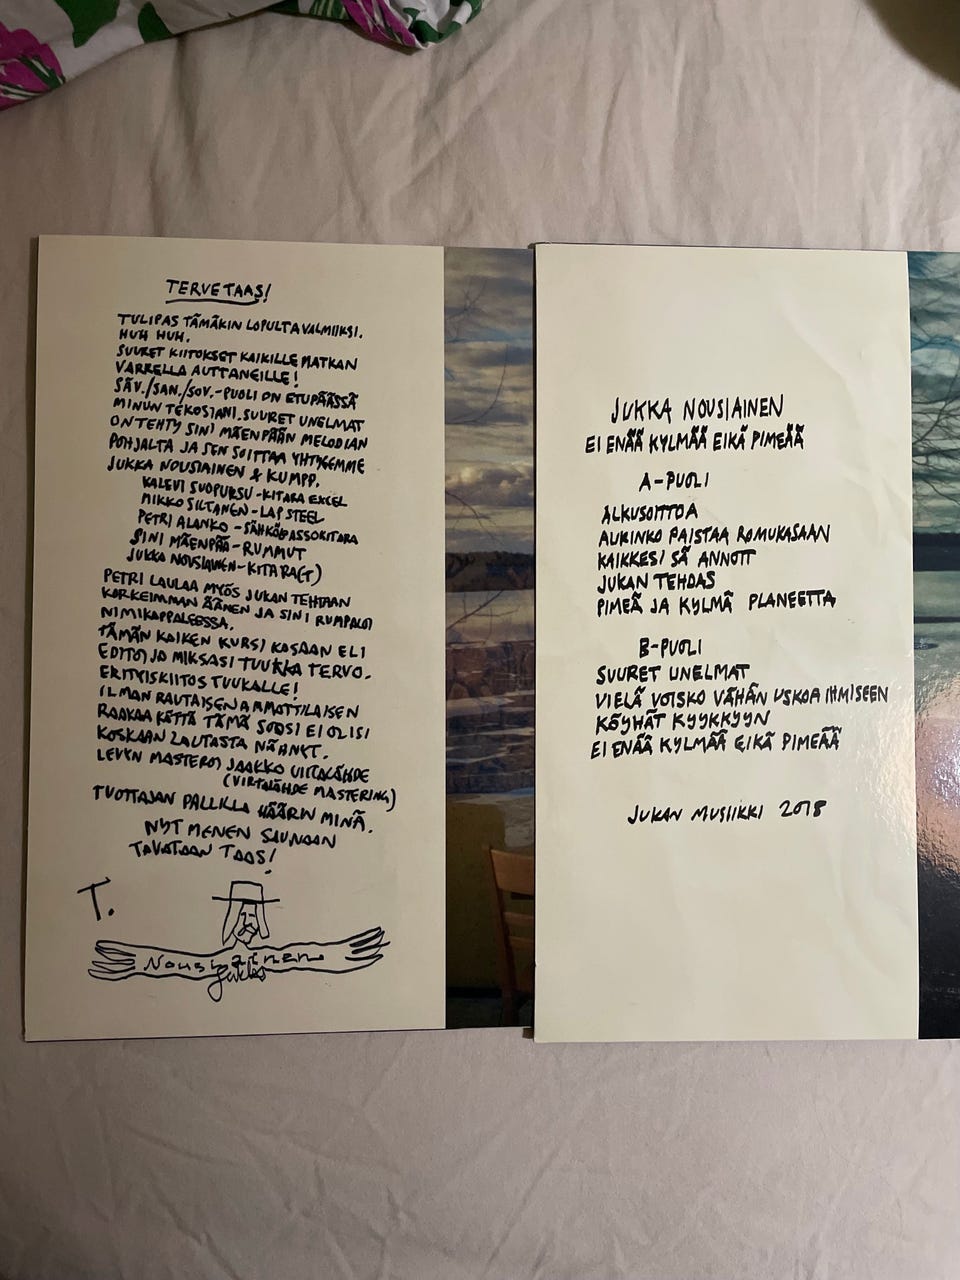 TERVE TAAS!
TULIPAS TÄMÄKIN LOPULTA VALMIIKSI.
HUH HUH.
SUURET KIITOKSET KAIKILLE MATKAN
VARRELLA AUTTANEILLE!
SÄV./SAN./SOV.-PUOLI ON ETUPÄÄSSÄ
MINUN TEKOSIANI. SUURET UNELMAT
ON TEHTY SINI MÄENPÄÄN MELODIAN
POHJALTA JA SEN SOITTAA YHTYEEMME
JUKKA NOUSIAINEN & KUMPP.
KALEVI SUOPURSU-KITARA EXCEL
MIKKO SILTANEN-LAP STEEL
PETRI ALANKO-SÄHKÖBASSOKITARA
SINI MÄENPÄÄ-RUMMUT
JUKKA NOUSIAINEN-KITARA(T)
PETRI LAULAA MYÖS JUKAN TEHTAAN
KORKEIMMAN ÄÄNEN JA SINI RUMPALOI
NIMIKAPPALEESSA.
TÄMÄN KAIKEN KURSI KASAAN ELI
EDITOI JA MIKSASI TUUKKA TERVO.
ERITYISKIITOS TUUKALLE!
ILMAN RAUTAISEN AMMATTILAISEN
RAAKAA KÄTTÄ TÄMÄ SOOSI EI OLISI
KOSKAAN LAUTASTA NÄHNYT.
LEVYN MASTEROI JAAKKO VIITALÄHDE
(VIRTALÄHDE MASTERING)
TUOTTAJAN PALLILLA HÄÄRIN MINÄ.
NYT MENEN SAUNAAN
TAVATAAN TAAS!
T.
Nousiainen
Jukka
JUKKA NOUSIAINEN
EI ENÄÄ KYLMÄÄ EIKÄ PIMEÄÄ
A-PUOLI
ALKUSOITTOA
AURINKO PAISTAA ROMUKASAAN
KAIKKES SÄ ANNOIT
JUKAN TEHDAS
PIMEÄ JA KYLMÄ PLANEETTA
B-PUOLI
SUURET UNELMAT
VIELÄ VOISKO VÄHÄN USKOA IHMISEEN
KÖYHÄT KYYKKYYN
EI ENÄÄ KYLMÄÄ EIKÄ PIMEÄÄ
JUKAN MUSIIKKI 2018